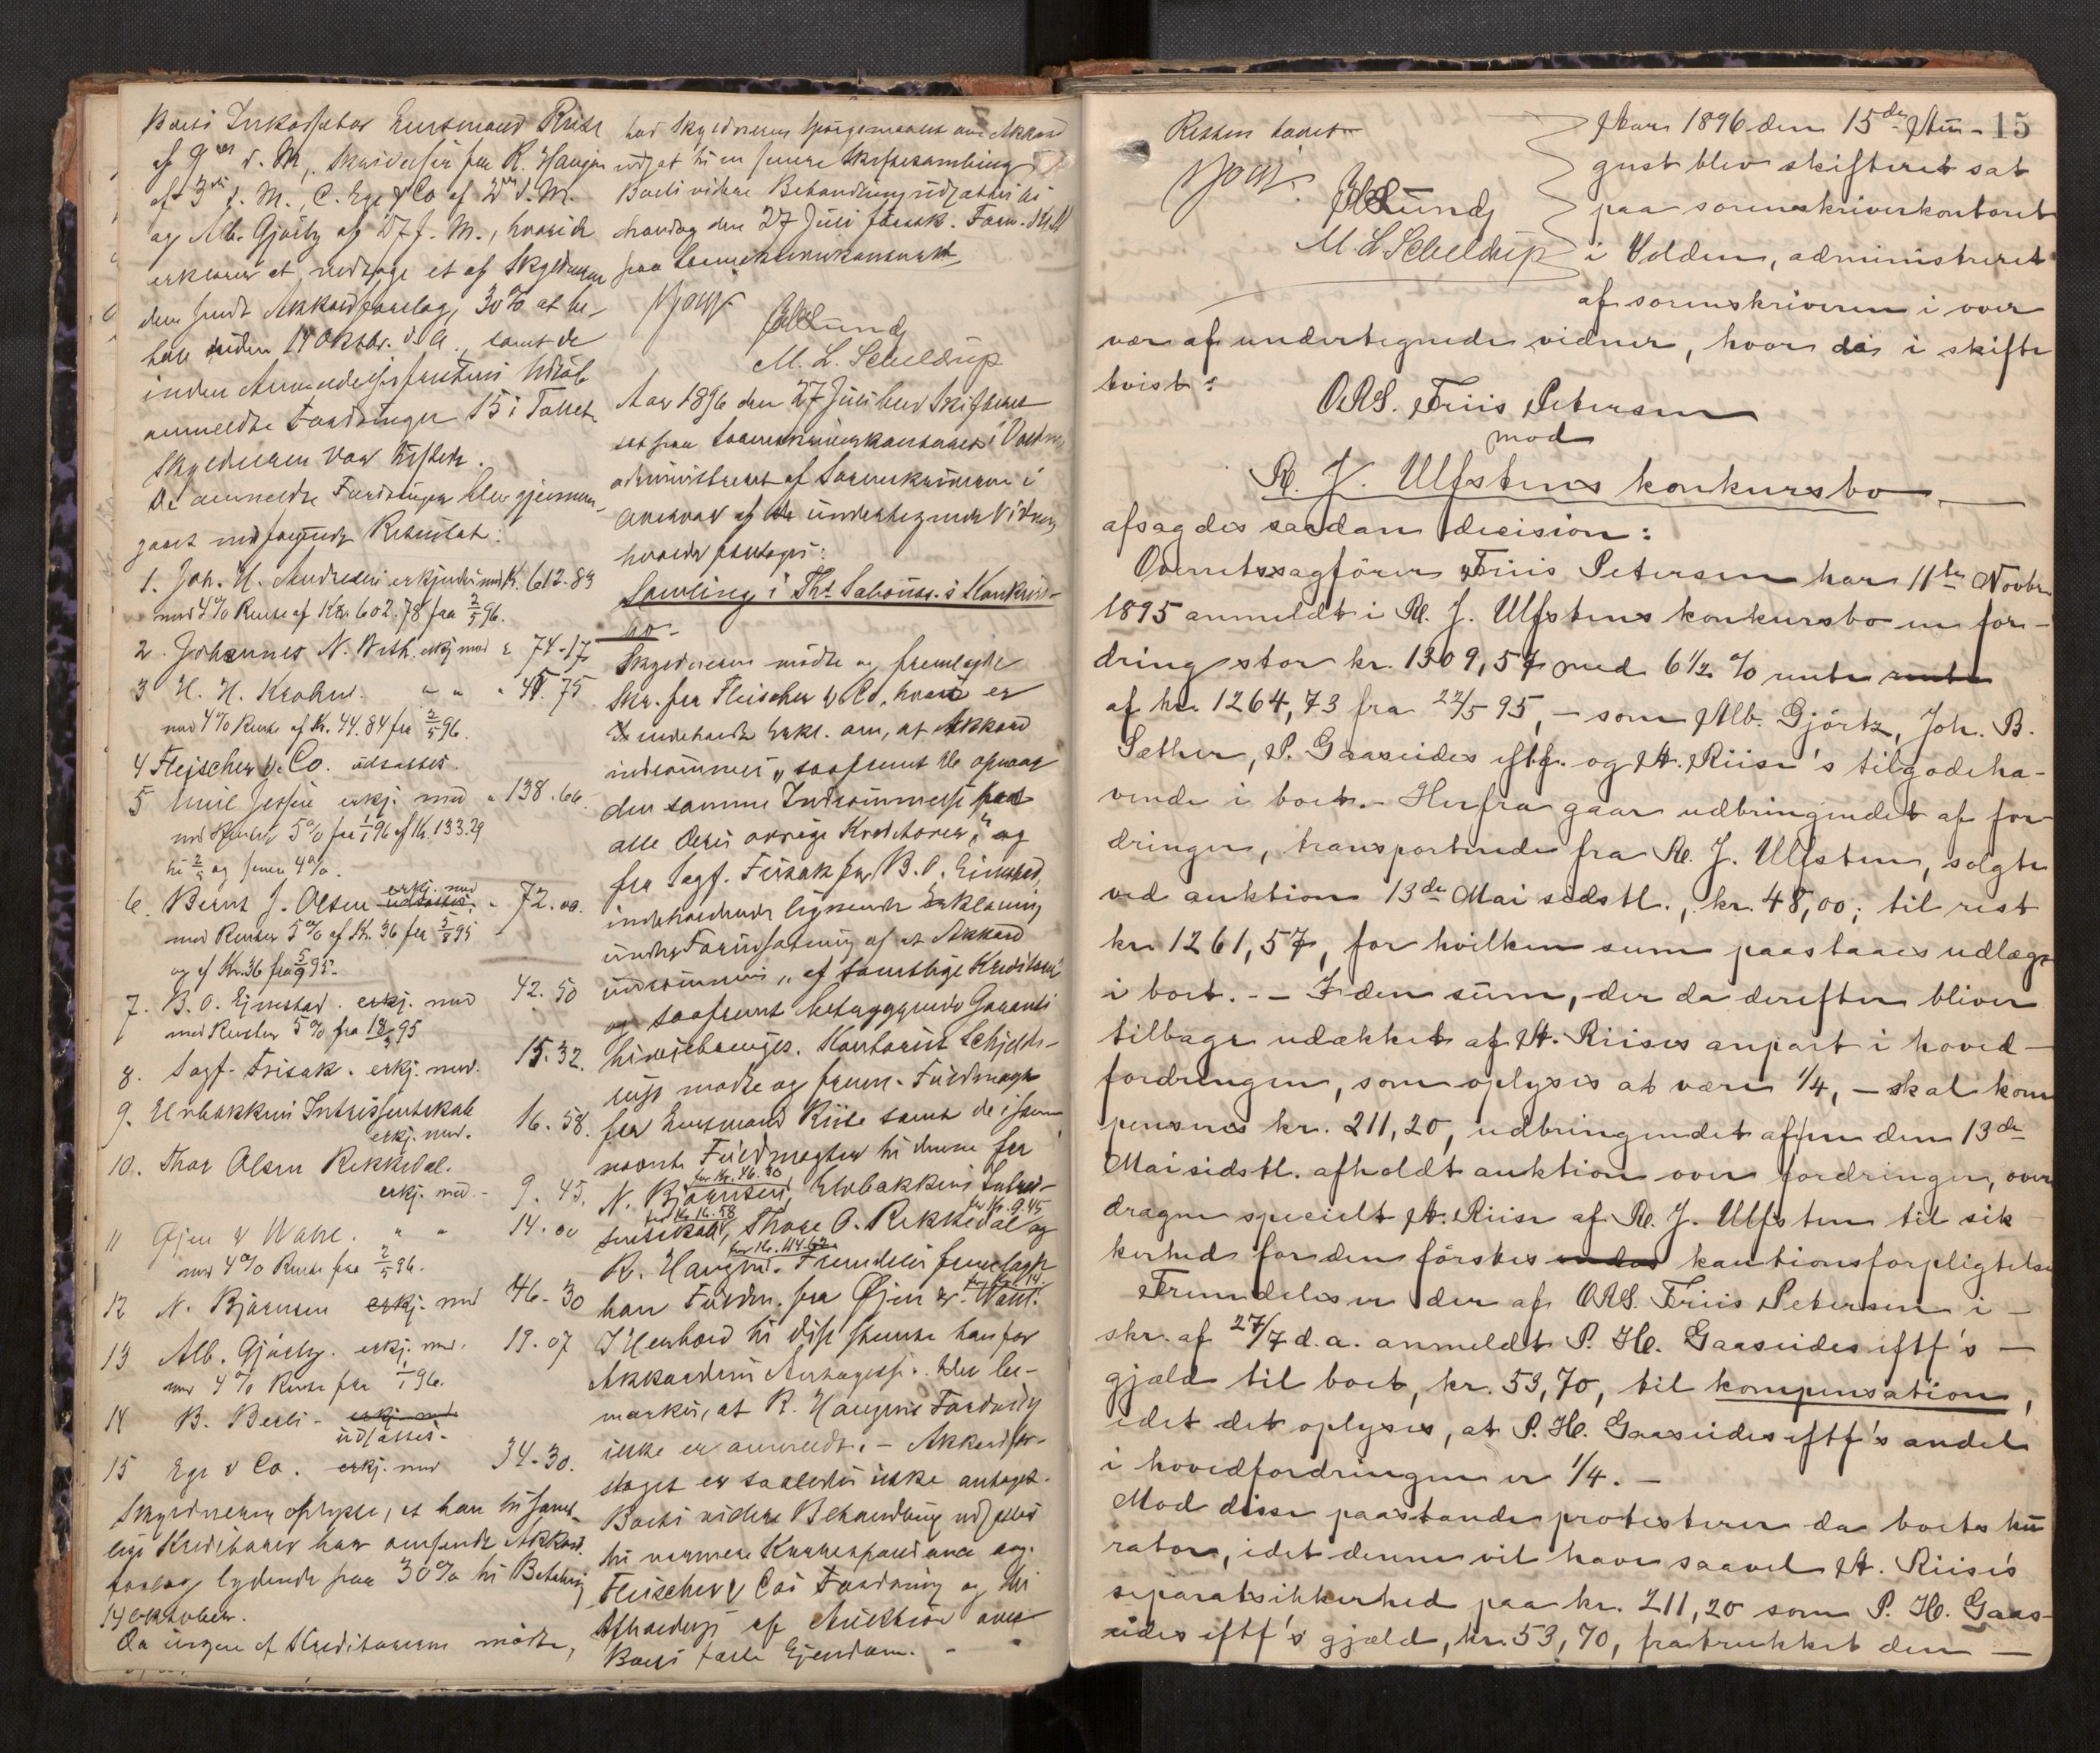 Boets Inkassator Lensmand Riise
af 9de d. M., Skrivelse fra R. Haugen
af 3die d. M., C. Ege & Co af 2den d. M.
og Alb. Gjørtz af 27 f. M., hvori de
erklærer at vedtage et af Skyldneren
dem sendt Akkordforslag, 30% at be-
tale inden 14 Oktbr. d. A., samt de
inden Anmeldelsesfristens Udløb
anmeldte Fordringer 15 i Tallet.
Skyldneren var tilstede.
De anmeldte Fordringer blev gjennem-
gaaet med følgende Resultat:
1. Joh. H. Andresen erkjendes med Kr. 612.83
med 4% Rente af Kr. 602.78 fra 2/5 96.
2. Johannes N. Velh. erkj. med " 74-17
3 H. H. Krohn. " " " 45.75
med 4% Rente af Kr. 44.84 fra 2/5 96.
4 Fleischer & Co. udsattes.
5 Emil Jessen erkj. med " 138.66.
med Renter 5% fra 1/1 96 af Kr. 133.29
til 2/5 og senere 4%.
6. Bernt J. Olsen udsattes. erkj. med " 72.00.
med Renter 5% af Kr. 36 fra 5/8 95
og af Kr. 36 fra 5/9 95.
7. B. O. Ejmstad. erkj. med 42.50
med Renter 5% fra 18/3 95
8. Sagf. Frisak. erkj. med. 15.32.
9. Urbakkens Intressentskab
erkj. med. 16.58.
10. Thor Olsen Rekkedal.
erkj. med. - 9.45.
11 Øjen & Wahl. " " 14.00
med 4% Rente fra 2/5 96.
12 N. Bjørnsen erkj. med 46-30
13 Alb. Gjørtz. erkj. med. 19.07
med 4% Rente fra 1/1 96.
14 B. Berli - erkj. med
udsattes.
15 Ege & Co. erkj. med 34-30.
Skyldneren oplyste, at han til samt-
lige Kreditorer har omsendt Akkord-
forslag lydende paa 30% til Betaling
14 Oktober.
Da ingen af Kreditorerne mødte,
lod Skyldneren Spørgsmaalet om Akkord
udsat til en senere Skiftesamling
Boets videre Behandling udsattes til
Mandag den 27 Juli førstk. Form.
paa Sorenskriverkontoret
M. L. Scheldrup
Aar 1896 den 27 Juli blev Skifteret
sat paa Sorenskriverkontoret i Volden
administreret af Sorenskriveren i
Overvær af de undertegnede Vidner,
hvorda foretoges:
Samling i Th.
Konkurs-
bo-
Skyldneren mødte og fremlagde
Skr. fra Fleischer & Co, hvori er
indeholdt Erkl. om, at Akkord
indrømmes, "saafremt De opnaar
den samme Indrømmelse fra
alle Deres øvrige Kreditorer," og
fra Sagf. Frisak for B. O. Eimstad,
indeholdende lignende Erklæring
under Forudsætning af at Akkord
indrømmes "af samtlige Kreditorer"
og saafremt betryggende Garanti
tilveiebringes. Kontorist Schjeld-
rup mødte og frem. Fuldmagt
fra Lensmand Riise samt de
nævnte Fuldmagter til denne fra
for Kr. 46.30
N. Bjørnsen, Urbakkens Intres-
for Kr. 16.58 for Kr. 9.45
sentskab, Thore O. Rekkedal og
R. Haugen. Fremdeles fremlagde
for Kr. 14.
han Fuldm. fra Øjen & Wahl.
I Henhold til disse stemte han for
Akkordens Antagelse. Der be-
mærkes, at R. Haugens Fordring
ikke er anmeldt. - Akkordfor-
slaget er saaledes ikke antaget.
Boets videre Behandling udsattes
til nærmere Korrespondance ang.
Fleischer & Co's Fordring og til
Afholdelse af Auktion over
Boets faste Ejendom. -
Retten hævet
M. L. Scheldrup
15
Aar 1896 den 15de Au-
gust blev skifteret sat
paa sorenskriverkontoret
i Volden, administreret
af sorenskriveren i over
vær af undertegnede vidner, hvor da i skifte
tvist:
ORS. Friis Petersen
mod
R. J. Ulfstens konkursbo.
afsagdes saadan decision:
Overretssagfører Friis Petersen har 11te Novbr
1895 anmeldt i R. J. Ulfstens konkursbo en for-
dring stor kr. 1309,57 med 6½ % rente rente
af kr. 1264,73 fra 22/5 95, - som Alb. Gjörtz, Joh. B.
Sæther, P. Gaaseides eftf. og A. Riise's tilgodeha-
vende i boet. - Herfra gaar udbringendet af for-
dringer, transporterede fra R. J. Ulfsten, solgte
ved auktion 13de Mai sidstl., kr. 48,00; til rest
kr. 1261,57, for hvilken sum paastaaes udlæg
i boet. - - I den sum, der da derefter bliver
tilbage udækket af A. Riises anpart i hoved-
fordringen, som oplyses at være 1/4, - skal kom
penseres kr. 211,20, udbringendet af en den 13de
Mai sidstl. afholdt auktion over fordringer, over
dragne specielt A. Riise af R. J. Ulfsten til sik
kerhed for den førstes kautionsforpligtelse
Fremdeles er der af ORS. Friis Petersen i -
skr. af 27/7 d. a. anmeldt P. H. Gaaseides eftf's -
gjæld til boet, kr. 53,70, til kompensation,
idet det oplyses, at P. H. Gaaseides eftf's andel
i hovedfordringen er 1/4. -
Mod disse paastande protesterer da boets ku
rator, idet denne vil have saavel A. Riises
separatsikkerhed paa kr. 211,20 som P. H. Gaas-
eides eftf's gjæld, kr. 53,70, fratrukket den -